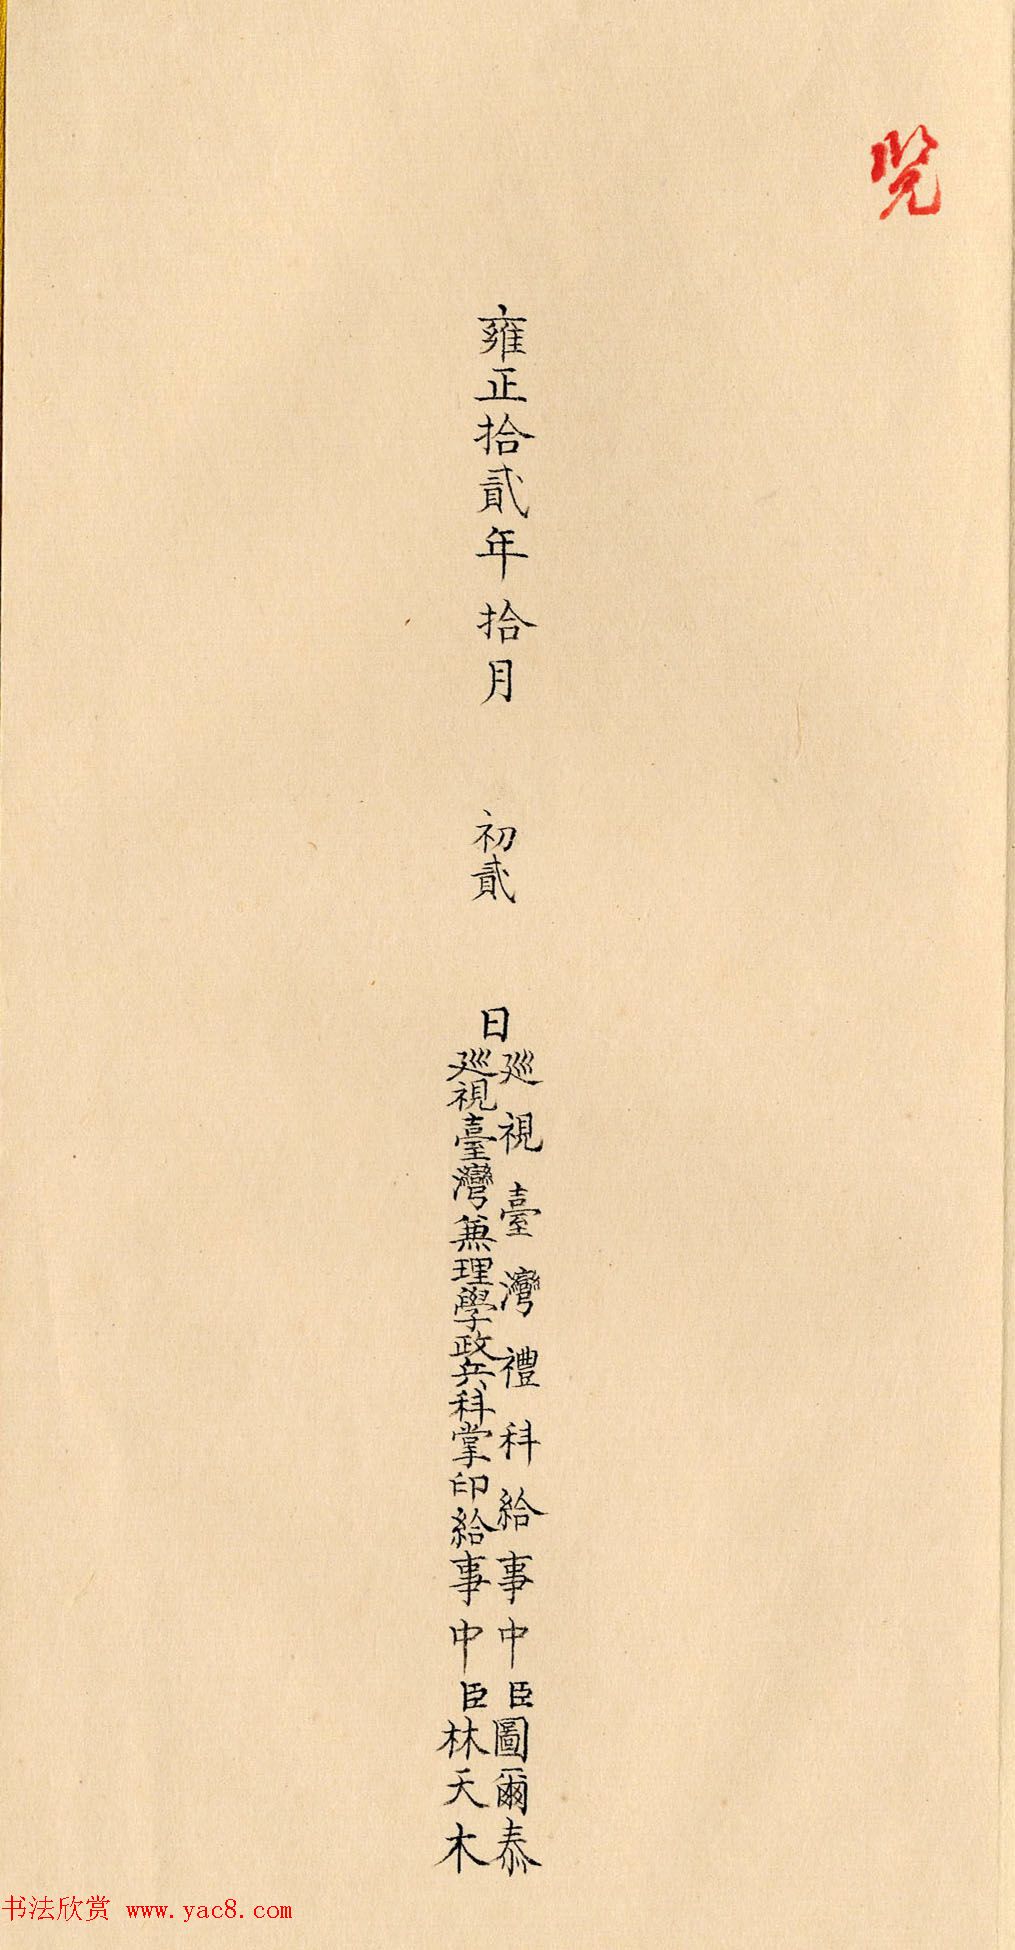 览
雍正拾貳年拾月初貳日
廵視臺灣禮科給事中臣圖爾泰
廵視臺灣兼理學政兵科掌印給事中臣林天木
书法欣赏 www.yac8.com